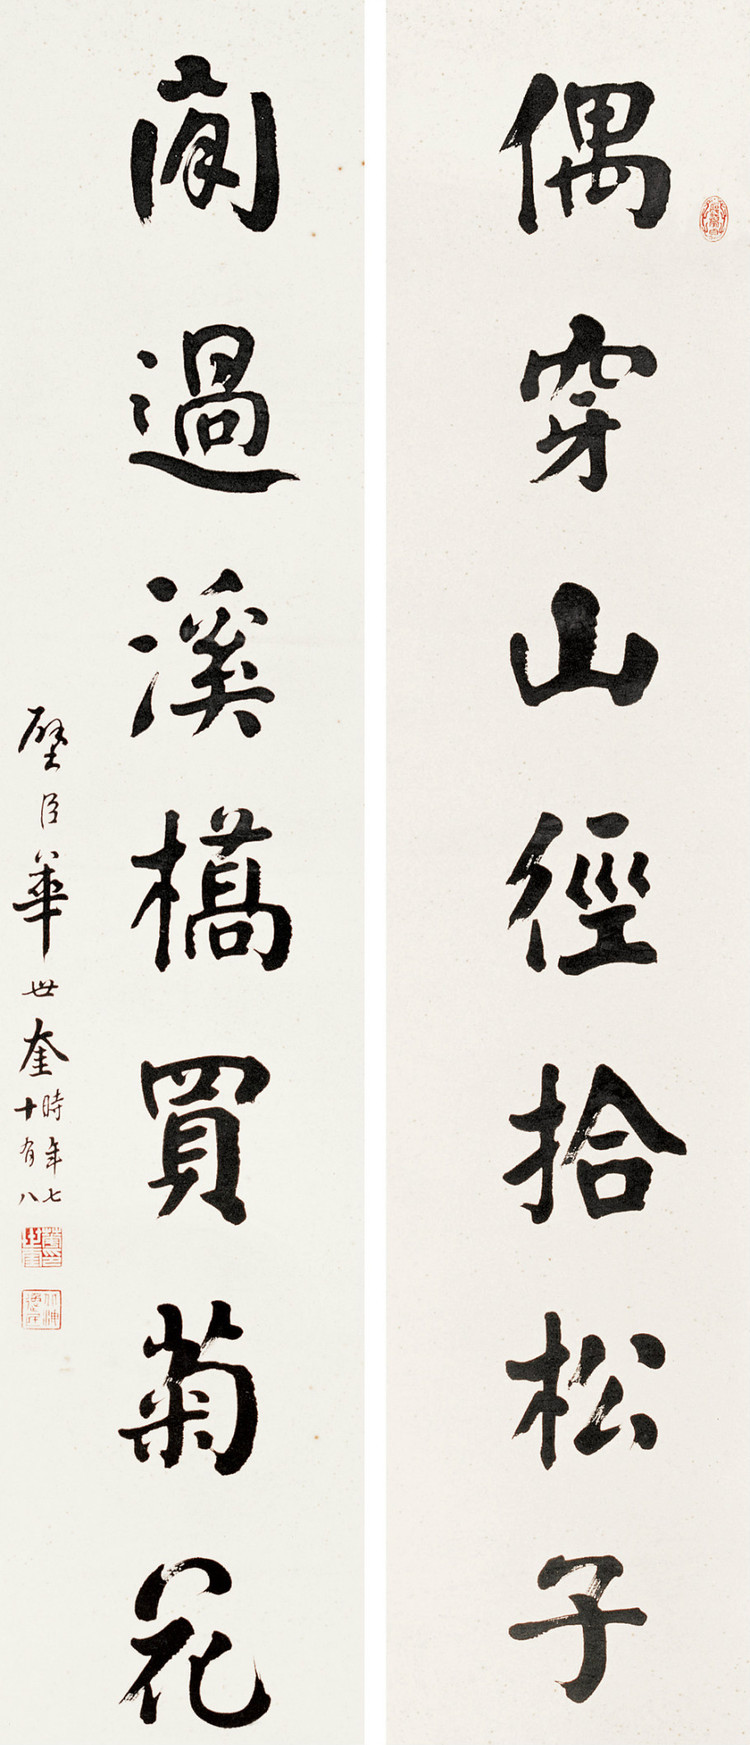 偶穿山徑拾松子
閒過溪橋買菊花
壁臣華世奎時年七十有八